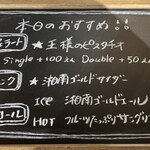 本日のおすすめ
ジェラート ★王様のピスタチオ
Single +100 Double +50
ドリンク ★湘南ゴールドサイダー
ICE 湘南ゴールドエール
アルコール HOT フルーツたっぷりサングリア